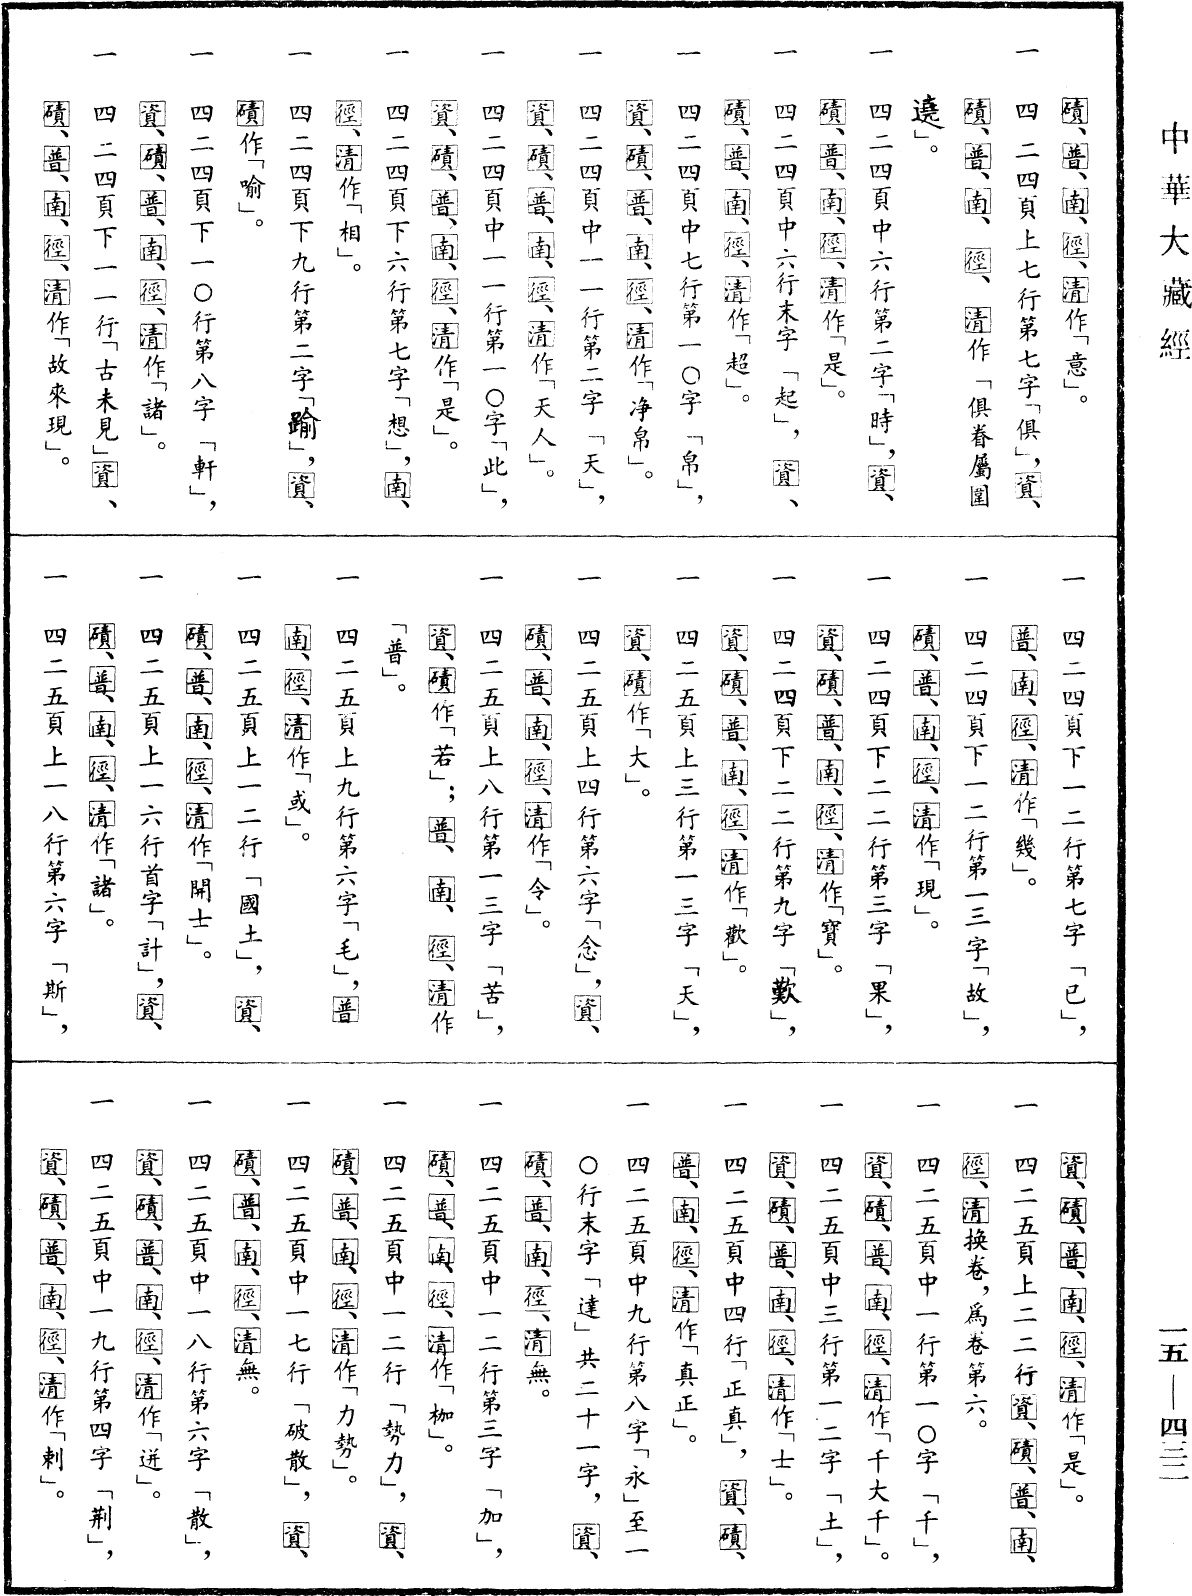 中華大藏經
磧、普、南、徑、清作「意」。
一 四二四頁上七行第七字「俱」，資、
磧、普、南、徑、清作「俱眷屬圍
遶」。
一 四二四頁中六行第二字「時」，資、
磧、普、南、徑、清作「是」。
一 四二四頁中六行末字「起」，資、
磧、普、南、徑、清作「超」。
一 四二四頁中七行第一〇字「帛」，
資、磧、普、南、徑、清作「净帛」。
一 四二四頁中一一行第二字「天」，
資、磧、普、南、徑、清作「天人」。
一 四二四頁中一一行第一〇字「此」，
資、磧、普、南、徑、清作「是」。
一 四二四頁下六行第七字「想」，南、
徑、清作「相」。
一 四二四頁下九行第二字「踰」，資、
磧作「喻」。
一 四二四頁下一〇行第八字「軒」，
資、磧、普、南、徑、清作「諸」。
一 四二四頁下一一行「古未見」資、
磧、普、南、徑、清作「故來現」。
一 四二四頁下一二行第七字「已」，
普、南、徑、清作「幾」。
一 四二四頁下一二行第一三字「故」，
磧、普、南、徑、清作「現」。
一 四二四頁下二二行第三字「果」，
資、磧、普、南、徑、清作「寶」。
一 四二四頁下二二行第九字「歎」，
資、磧、普、南、徑、清作「歡」。
一 四二五頁上三行第一三字「天」，
資、磧作「大」。
一 四二五頁上四行第六字「念」，資、
磧、普、南、徑、清作「令」。
一 四二五頁上八行第一三字「苦」，
資、磧作「若」；普、南、徑、清作
「普」。
一 四二五頁上九行第六字「毛」，普
南、徑、清作「或」。
一 四二五頁上一二行「國土」，資、
磧、普、南、徑、清作「開士」。
一 四二五頁上一六行首字「計」，資、
磧、普、南、徑、清作「諸」。
一 四二五頁上一八行第六字「斯」，
資、磧、普、南、徑、清作「是」。
一 四二五頁上二二行資、磧、普、南、
徑、清换卷，爲卷第六。
一 四二五頁中一行第一〇字「千」，
資、磧、普、南、徑、清作「千大千」。
一 四二五頁中三行第一二字「土」，
資、磧、普、南、徑、清作「士」。
一 四二五頁中四行「正真」，資、磧、
普、南、徑、清作「真正」。
一 四二五頁中九行第八字「永」至一
〇行末字「達」共二十一字，資、
磧、普、南、徑、清無。
一 四二五頁中一二行第三字「加」，
磧、普、南、徑、清作「枷」。
一 四二五頁中一二行「勢力」，資、
磧、普、南、徑、清作「力勢」。
一 四二五頁中一七行「破散」，資、
磧、普、南、徑、清無。
一 四二五頁中一八行第六字「散」，
資、磧、普、南、徑、清作「迸」。
一 四二五頁中一九行第四字「荆」，
資、磧、普、南、徑、清作「刺」。
一五—四三二